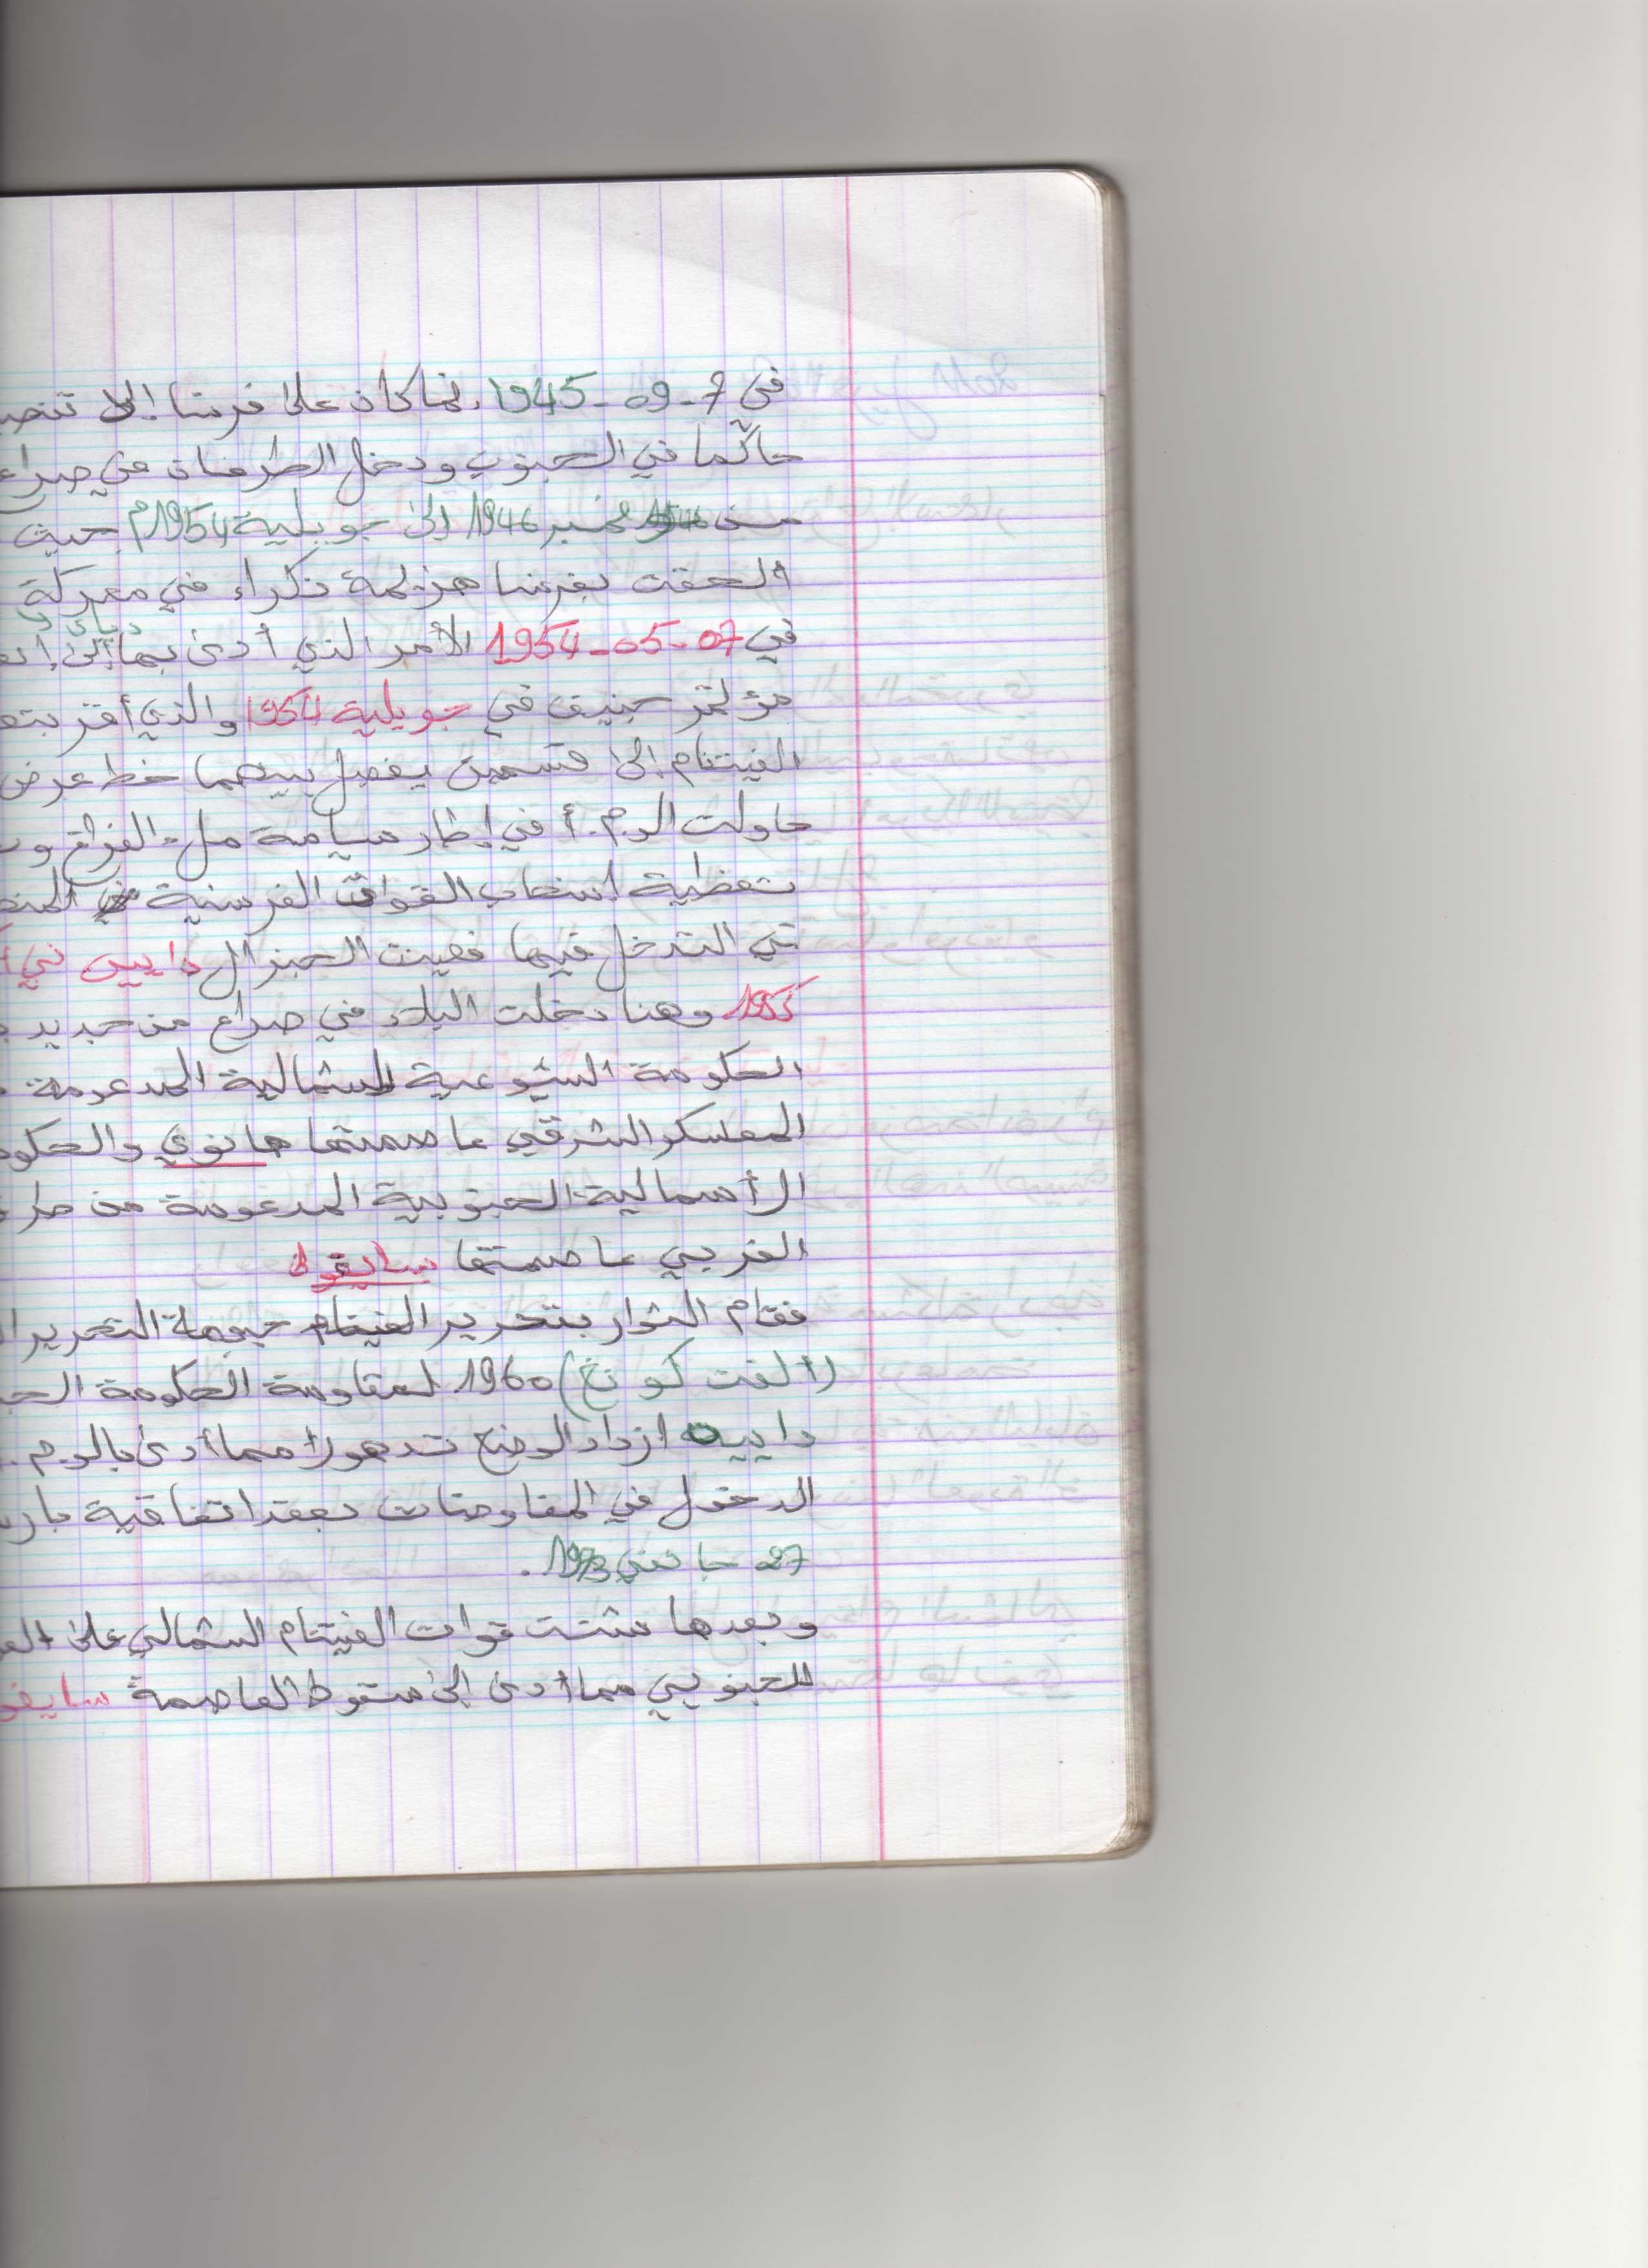 في 7-09-1945 فما كان على فرنسا إلا تنصيـ
حاكما في الجنوب ودخل الطرفان في صراع
من ديسمبر 1946 إلى جويلية 1954م حيث
ألحقت بفرنسا هزيمة نكراء في معركة
ديان
في 07-05-1954 الأمر الذي أدى بها إلى
مؤتمر جنيف في جويلية 1954 والذي أقر بتقـ
الفيتنام إلى قسمين يفصل بينهما خط عرض
حاولت الو.م.أ في إطار سياسة ملء الفراغ و
تغطية انسحاب القوات الفرنسية المنـ
في التدخل فيها فعينت الجنرال داييس في
1955 وهنا دخلت البلاد في صراع من جديد
الحكومة الشيوعية الشمالية المدعومة
المعسكر الشرقي عاصمتها هانوي والحكو
الرأسمالية الجنوبية المدعومة من طر
الغربي عاصمتها سايقون
فقام الثوار بتحرير الفيتنام جبهة التحرير
(الفت كونغ) 1960 لمقاومة الحكومة الجـ
داييه ازداد الوضع تدهورا مما أدى بالو.م.
الدخول في المفاوضات بعقد اتفاقية بار
27 جانفي 1973.
وبعدها شنت قوات الفيتنام الشمالي على
للجنوبي مما أدى إلى سقوط العاصمة سايقو